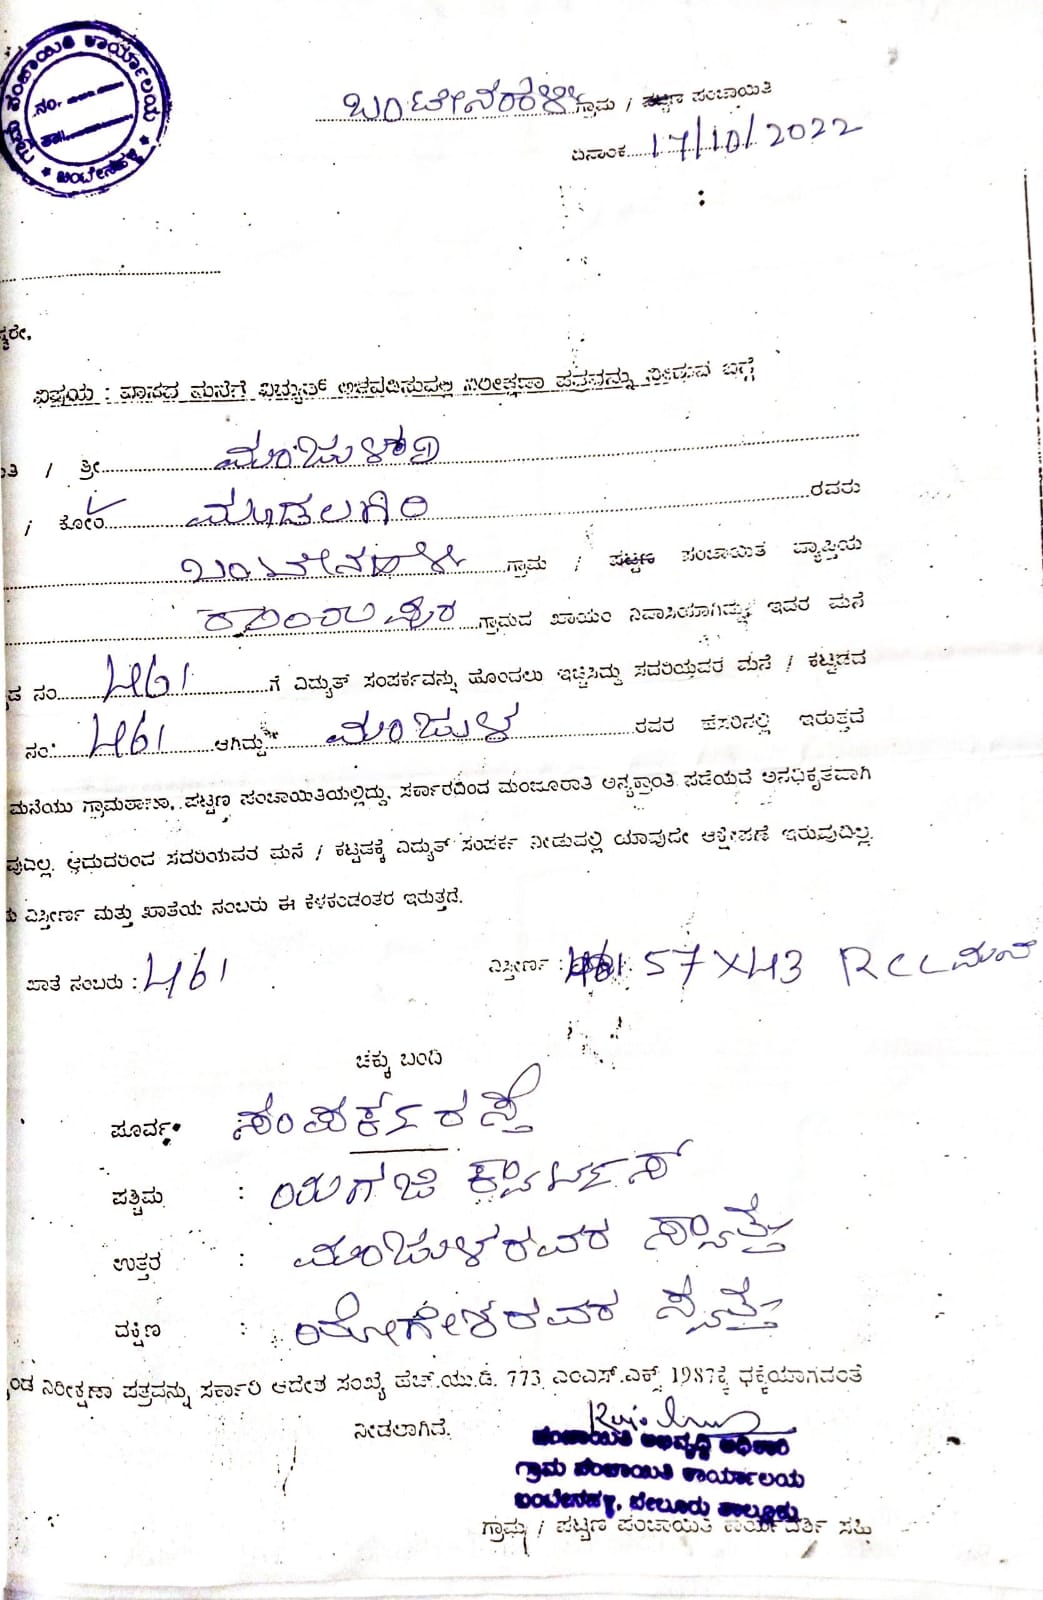 ಗ್ರಾಮ ಪಂಚಾಯಿತಿ ಕಾರ್ಯಾಲಯ
ನಂ.
ತಾ॥
* ಬಂಟೇನಹಳ್ಳಿ *
ಬಂಟೇನಹಳ್ಳಿ ಗ್ರಾಮ / ಪಟ್ಟಣ ಪಂಚಾಯಿತಿ
ದಿನಾಂಕ 17/10/2022
ವಿಷಯ : ವಾಸದ ಮನೆಗೆ ವಿದ್ಯುತ್ ನಿರೀಕ್ಷಣಾ ಪತ್ರವನ್ನು ನೀಡುವ ಬಗ್ಗೆ
/ ಶ್ರೀ ಮಂಜುಳ
/ ಕೋಂ ಮೂಡಲಗಿರಿ ರವರು
ಬಂಟೇನಹಳ್ಳಿ ಗ್ರಾಮ / ಪಟ್ಟಣ ಪಂಚಾಯಿತಿ ವ್ಯಾಪ್ತಿಯ
ಗ್ರಾಮದ ಖಾಯಂ ನಿವಾಸಿಯಾಗಿದ್ದು ಇವರ ಮನೆ
ನಂ 461 ಗೆ ವಿದ್ಯುತ್ ಸಂಪರ್ಕವನ್ನು ಹೊಂದಲು ಇಚ್ಚಿಸಿದ್ದು ಸದರಿಯವರ ಮನೆ / ಕಟ್ಟಡದ
ನಂ: 461 ಆಗಿದ್ದು ಮಂಜುಳ ರವರ ಹೆಸರಿನಲ್ಲಿ ಇರುತ್ತದೆ
ಮನೆಯು ಗ್ರಾಮಠಾಣಾ, ಪಟ್ಟಣ ಪಂಚಾಯಿತಿಯಲ್ಲಿದ್ದು, ಸರ್ಕಾರದಿಂದ ಮಂಜೂರಾತಿ ಅನ್ಯಕ್ರಾಂತಿ ಪಡೆಯದೆ ಅನಧಿಕೃತವಾಗಿ
ವುದಿಲ್ಲ. ಆದುದರಿಂದ ಸದರಿಯವರ ಮನೆ / ಕಟ್ಟಡಕ್ಕೆ ವಿದ್ಯುತ್ ಸಂಪರ್ಕ ನೀಡುವಲ್ಲಿ ಯಾವುದೇ ಆಕ್ಷೇಪಣೆ ಇರುವುದಿಲ್ಲ.
ವಿಸ್ತೀರ್ಣ ಮತ್ತು ಖಾತೆಯ ನಂಬರು ಈ ಕೆಳಕಂಡಂತರ ಇರುತ್ತದೆ.
ಖಾತೆ ನಂಬರು : 461 ವಿಸ್ತೀರ್ಣ : 57 X 43 RCC ಮನೆ
ಚಕ್ಕು ಬಂದಿ
ಪೂರ್ವ : ಸಂಪರ್ಕ ರಸ್ತೆ
ಪಶ್ಚಿಮ : ಯಗಚಿ ಕ್ವಾರ್ಟರ್ಸ್
ಉತ್ತರ : ಮಂಜುಳರವರ ಸ್ವತ್ತು
ದಕ್ಷಿಣ : ಯೋಗೇಶರವರ ಸ್ವತ್ತು
ನಿರೀಕ್ಷಣಾ ಪತ್ರವನ್ನು ಸರ್ಕಾರಿ ಆದೇಶ ಸಂಖ್ಯೆ ಹೆಚ್.ಯು.ಡಿ. 773 ಎಂಎಸ್.ಎಕ್ಸ್ 1987ಕ್ಕೆ ಧಕ್ಕೆಯಾಗದಂತೆ
ನೀಡಲಾಗಿದೆ.
ಪಂಚಾಯಿತಿ ಅಭಿವೃದ್ಧಿ ಅಧಿಕಾರಿ
ಗ್ರಾಮ ಪಂಚಾಯಿತಿ ಕಾರ್ಯಾಲಯ
ಬಂಟೇನಹಳ್ಳಿ, ಬೇಲೂರು ತಾಲ್ಲೂಕು
ಗ್ರಾಮ / ಪಟ್ಟಣ ಪಂಚಾಯಿತಿ ಕಾರ್ಯದರ್ಶಿ ಸಹಿ